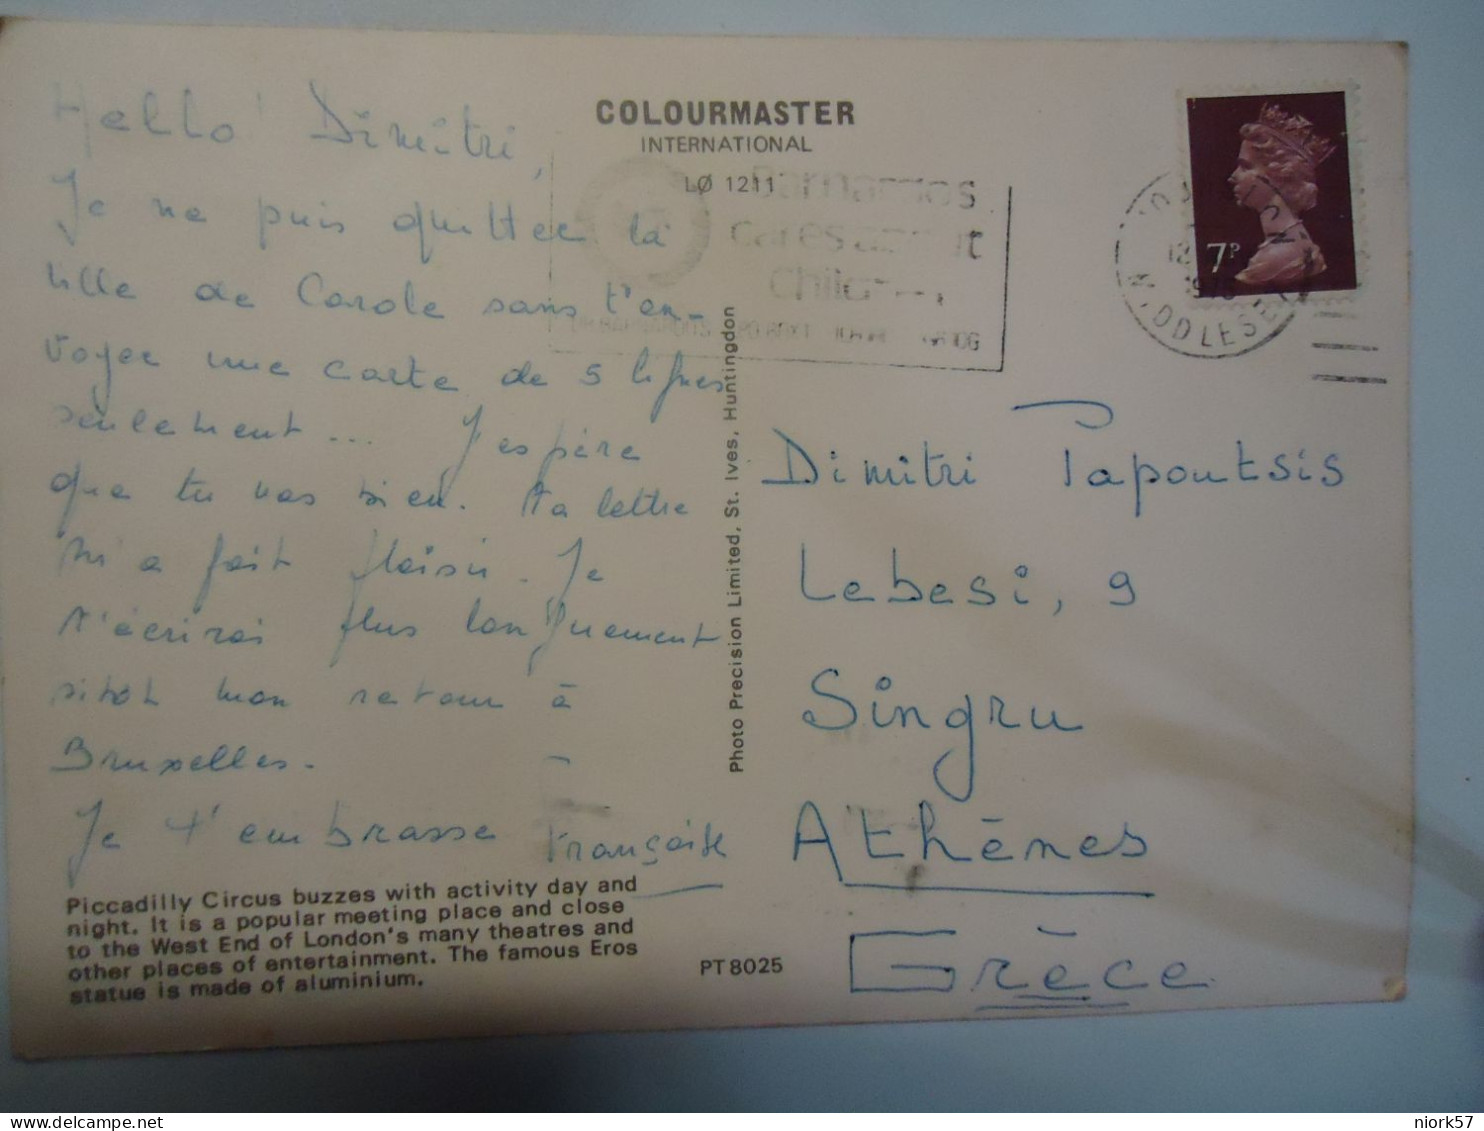 Hello Dimitri,
Je ne puis quitter la
ville de Carole sans t'en-
voyer une carte de 5 lignes
seulement ... J'espère
que tu vas bien. Ta lettre
m'a fait plaisir. Je
t'écrirai plus longuement
sitôt mon retour à
Bruxelles.
Je t'embrasse Françoise
Piccadilly Circus buzzes with activity day and
night. It is a popular meeting place and close
to the West End of London's many theatres and
other places of entertainment. The famous Eros
statue is made of aluminium.
PT 8025
COLOURMASTER
INTERNATIONAL
LØ 1211
Barnardos
cares about
Children
Photo Precision Limited, St. Ives, Huntingdon
7P
MIDDLESEX
Dimitri Papoutsis
Lebesi, 9
Singru
Athènes
Grèce
niork57